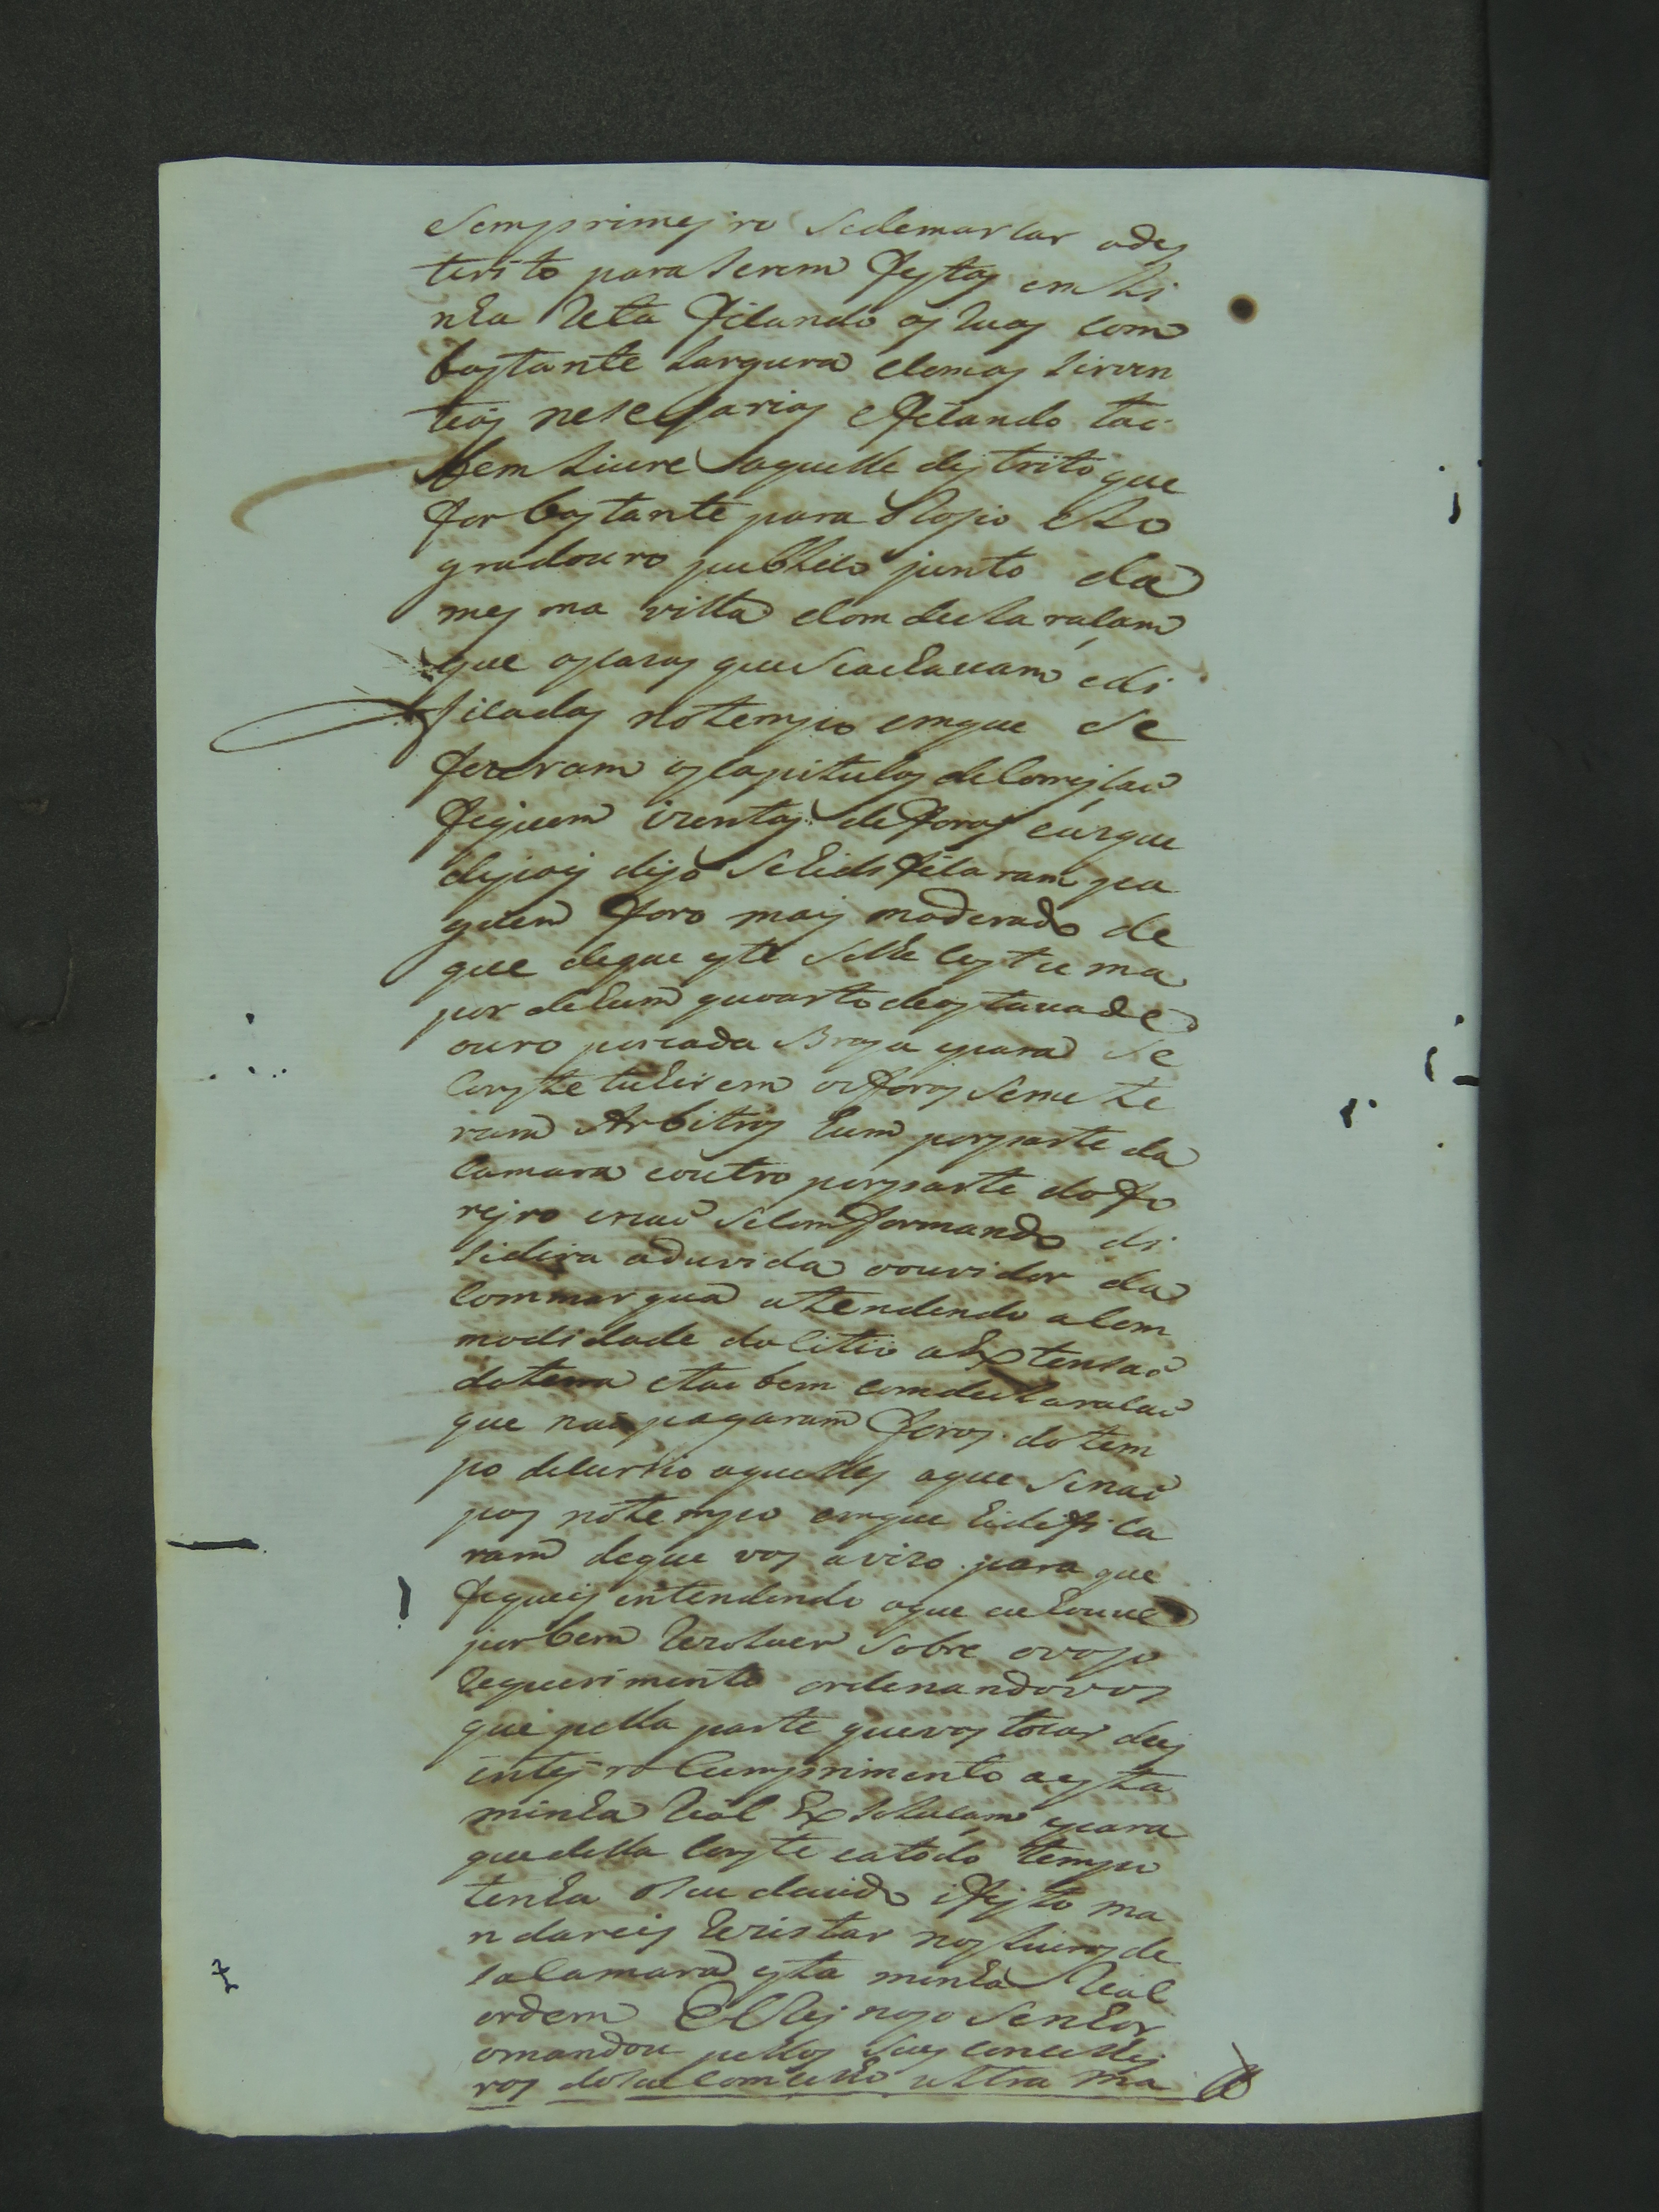 Sem primejro Sedemarcar odes
terito para Serem fejtas em Li
nha Reta ficando as Ruas Com
bastante Largura e Comas Serven
tias nesesarias e ficando tao
bem Livre aquelle destrito que
for bastante para Rosio e Lo
gradouro publico junto da
mesma villa e Com declaracam
que as Casas que Se achavam edi
ficadas no tempo emque Se
fizeram os Capitulos de Correjcaõ
fiquem izentas de foros e as que
depois diso Se hidificaram pa
guem foro mais moderado de
que deque este Se lhe Custuma
por de hum quarto de oytava de
ouro por cada Brasa e para Se
Constetuhirem os foros Se mete
ram Arbitros hum por parte da
Camara e outro por parte do fo
rejro e naõ Se Comformando di
sidira aduvida o ouvidor da
Commarqua atendendo a Com
modidade do Citio a Extensaõ
da terra e tao bem Com declaracaõ
que naõ pagaram foros do tem
po decurso aquelles aque Se naõ
pos no tempo emque hidifica
ram deque vos avizo para que
fiqueis entendendo oque eu houve
por bem Rezolver Sobre o voso
Requerimento ordenandovos
que pella parte que vos tocar deis
intejro Cumprimento a esta
minha Rial ExSolucam e para
que della Conste e a todo tempo
tenha o Seu devido ifejto ma
ndareis Rezistar nos Livros de
Sa Camara esta minha Rial
ordem El Rej noso Senhor
o mandou pellos Seus Concelhej
ros do Seu Comcelho ultra ma